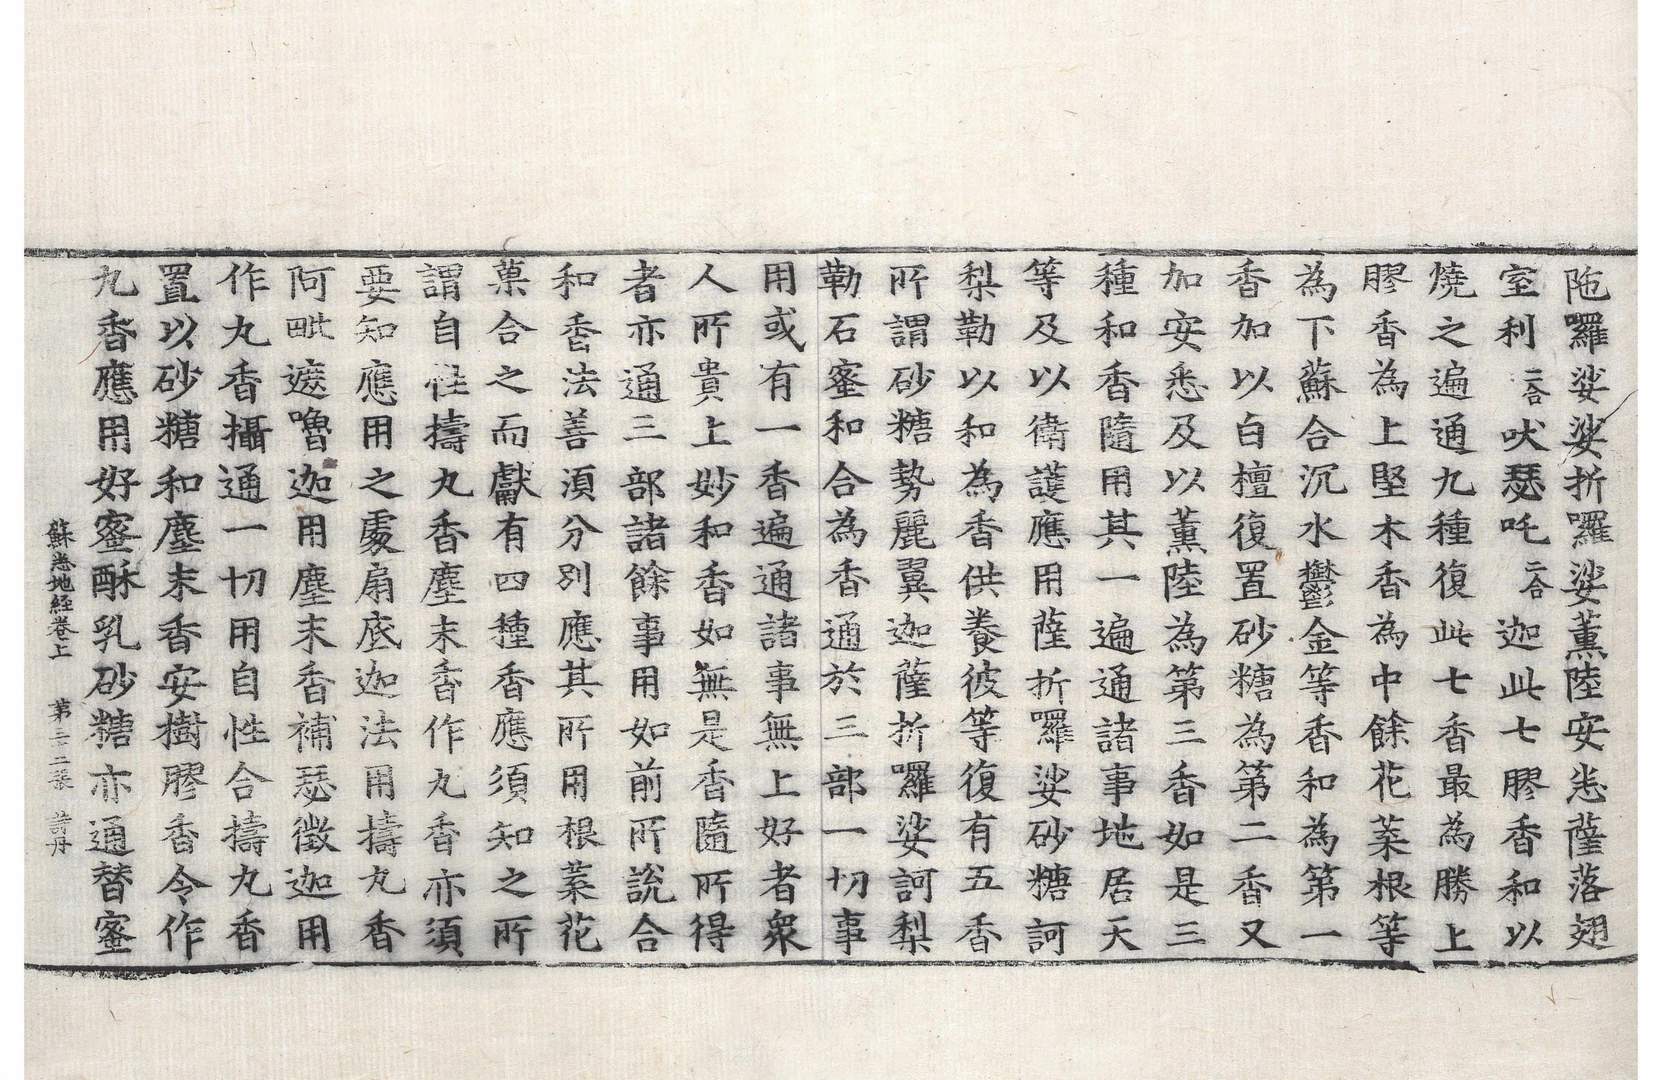 陁囉娑娑折囉娑薰陸安悉薩落翅
室利二合吠瑟吒二合迦此七膠香和以
燒之遍通九種復此七香最為勝上
膠香為上堅木香為中餘花葉根等
為下蘇合沉水欝金等香和為第一
香加以白檀復置砂糖為第二香又
加安悉及以薰陸為第三香如是三
種和香隨用其一遍通諸事地居天
等及以衛護應用薩折囉娑砂糖訶
梨勒以和為香供養彼等復有五香
所謂砂糖勢麗翼迦薩折囉娑訶梨
勒石蜜和合為香通於三部一切事
用或有一香遍通諸事無上好者衆
人所貴上妙和香如無是香隨所得
者亦通三部諸餘事用如前所說合
和香法善須分別應其所用根葉花
菓合之而獻有四種香應須知之所
謂自性擣丸香塵末香作丸香亦須
要知應用之處扇底迦法用擣丸香
阿毗遮嚕迦用塵末香補瑟徵迦用
作丸香攝通一切用自性合擣丸香
置以砂糖和塵末香安樹膠香令作
丸香應用好蜜酥乳砂糖亦通替蜜
蘇悉地經卷上　第二十二張